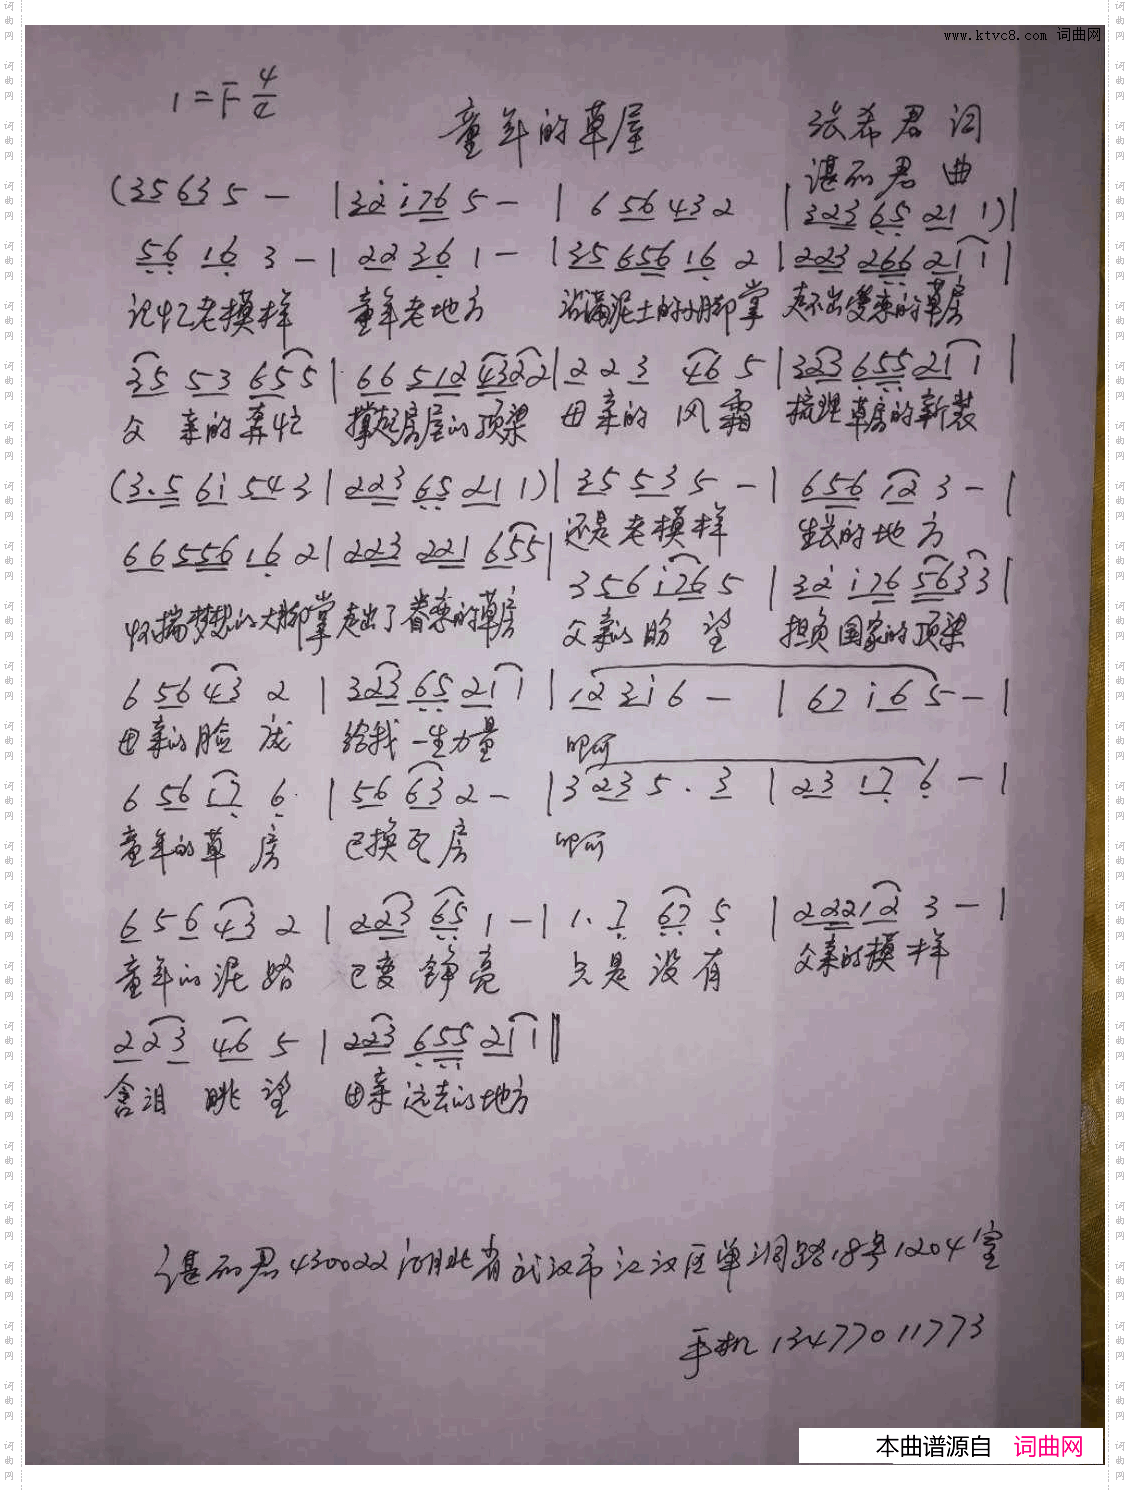 www.ktvc8.com 词曲网
1=F 4/4
童年的草屋
张希君 词
谌丽君 曲
(35 63 5 - | 32 i76 5 - | 6 56 43 2 | 323 65 21 1)|
56 16 3 - | 22 36 1 - | 35 656 16 2 | 223 266 211 1|
记忆老模样 童年老地方 沾满泥土的小脚掌 走不出爱亲的草房
35 53 655 5| 66 512 4322| 2 2 3 46 5 | 323 655 211|
父亲的奔忙 撑起房屋的顶梁 母亲的风霜 梳理草房的新装
(3.5 6i 54 3 | 223 65 21 1)| 35 53 5 - | 656 i2 3 - |
还是老模样 生长的地方
66 556 16 2 | 223 221 655|
怀揣梦想的大脚掌 走出了眷亲的草房
3 56 i76 5 | 32 i76 5633|
父亲的盼望 担负国家的顶梁
6 56 43 2 | 323 65 211 | 12 3i 6 - | 67 i6 5 - |
母亲的脸庞 给我一生力量 啊
6 56 i7 6 | 56 63 2 - | 3 23 5. 3 | 23 17 6 - |
童年的草房 已换瓦房 啊
6 5 6 43 2 | 223 65 1 - | 1. 7 67 5 | 22212 3 - |
童年的泥路 已变铮亮 只是没有 父亲的模样
2 2 3 46 5 | 223 655 211‖
含泪眺望 母亲远去的地方
谌丽君430022湖北省武汉市江汉区单洞路18号1204室
手机13477011773
本曲谱源自 词曲网